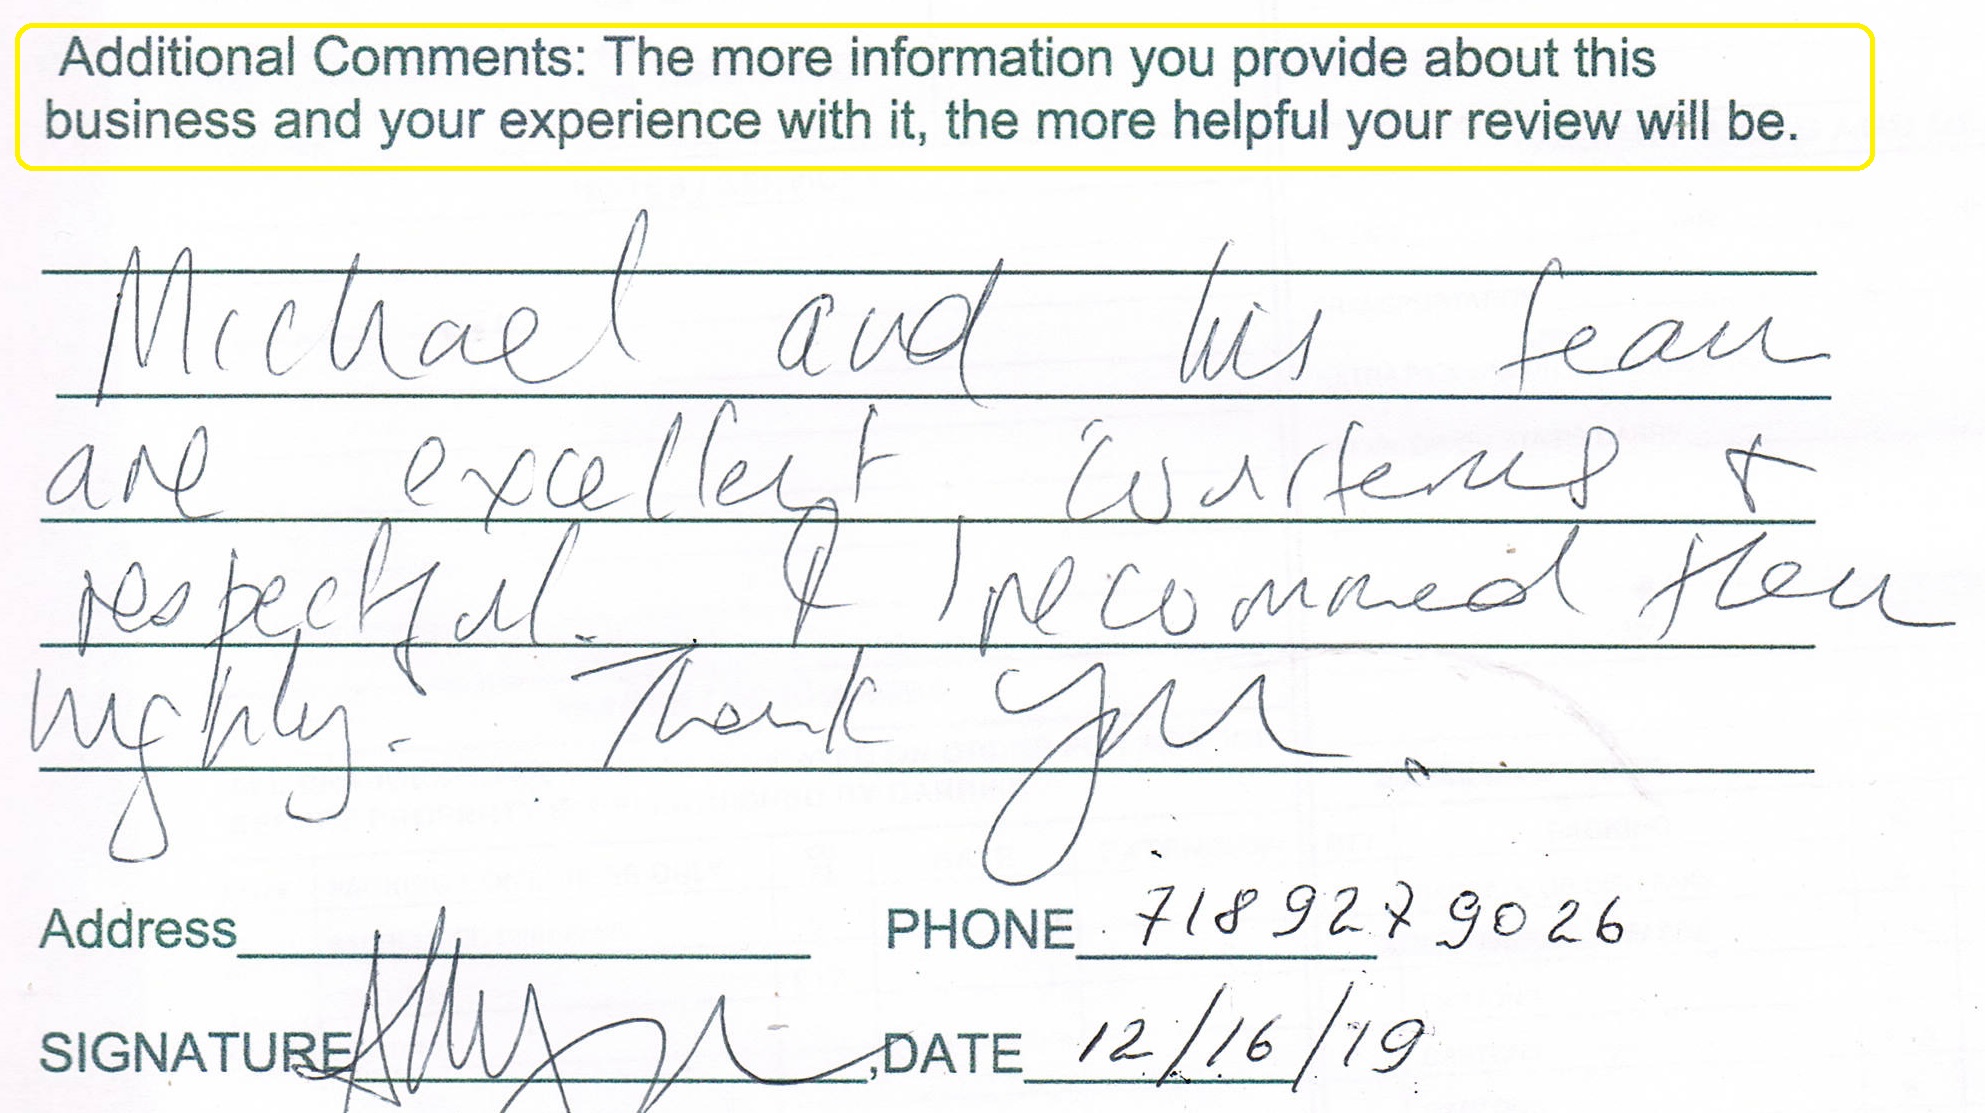 Additional Comments: The more information you provide about this
business and your experience with it, the more helpful your review will be.
Michael and his team
are excellent workers +
respectful. & I recommed them
highly. Thank you
Address PHONE 718 927 9026
SIGNATURE ,DATE 12/16/19